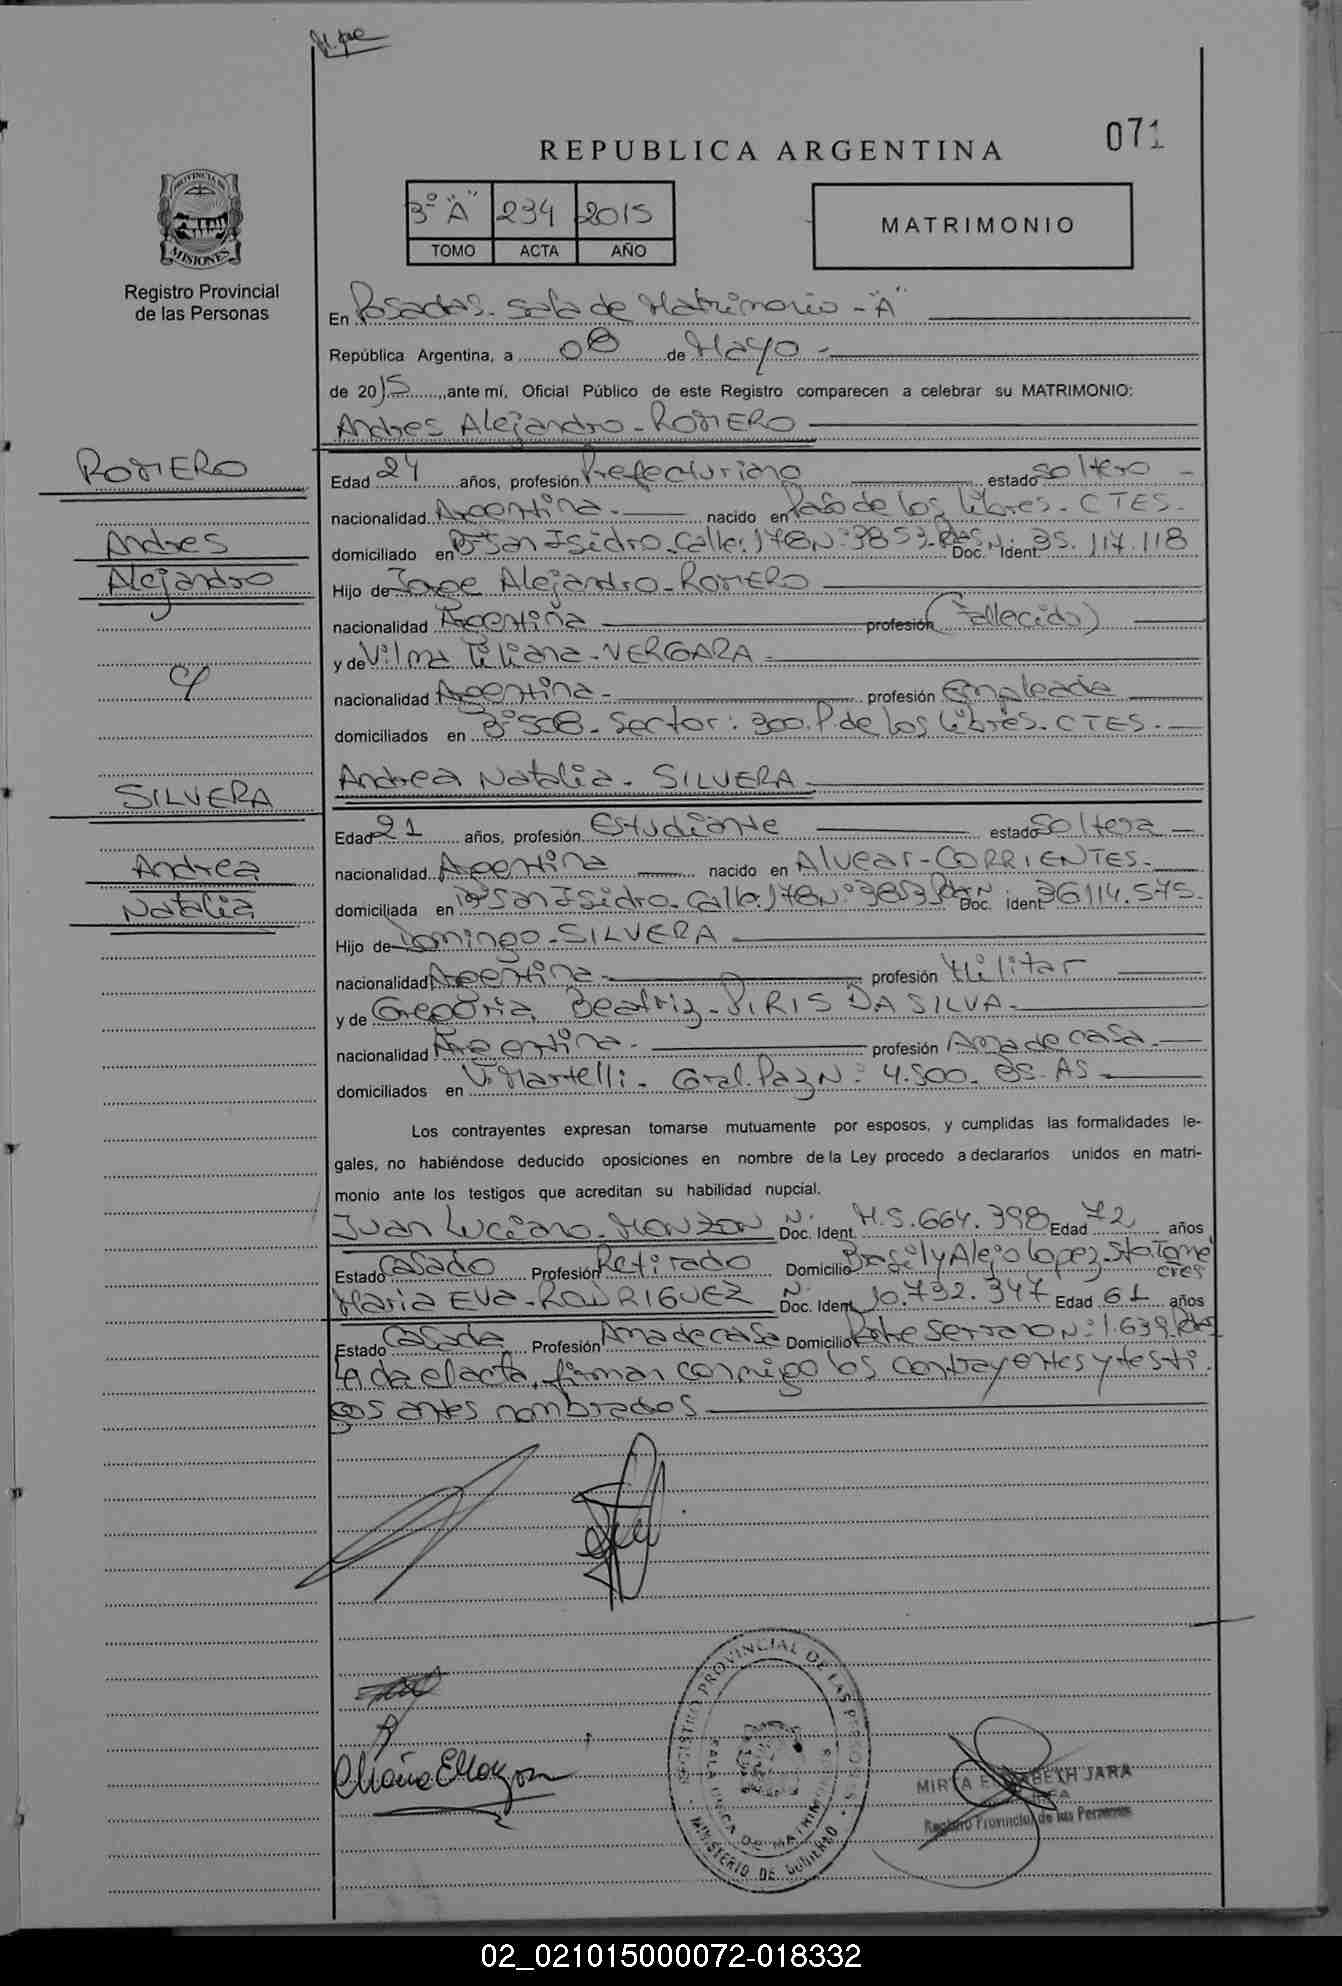 071
REPUBLICA ARGENTINA
3° "A" 234 2015
TOMO ACTA AÑO
MATRIMONIO
PROVINCIA DE
MISIONES
Registro Provincial
de las Personas
En Posadas. Sala de Matrimonio - "A"
República Argentina, a 08 de Mayo -
de 2015, ante mí, Oficial Público de este Registro comparecen a celebrar su MATRIMONIO:
Andres Alejandro - ROMERO
ROMERO
Andres
Alejandro
c/
SILVERA
Andrea
Natalia
Edad 24 años, profesión Prefecturiano estado Soltero -
nacionalidad Argentina - nacido en Paso de los Libres - CTES.
domiciliado en B° San Isidro. Calle: 178 N°: 3853. Pdas. Doc. Ident. 35.117.118
Hijo de Jorge Alejandro - ROMERO
nacionalidad Argentina profesión (Fallecido)
y de Vilma Liliana - VERGARA -
nacionalidad Argentina - profesión Empleada
domiciliados en B° 508 - Sector: 300. P. de los Libres - CTES.
Andrea Natalia - SILVERA
Edad 21 años, profesión Estudiante estado Soltera
nacionalidad Argentina nacido en Alvear - CORRIENTES -
domiciliada en B° San Isidro. Calle: 178 N°: 3853 Pdas. Doc. Ident. 36.114.575.
Hijo de Domingo - SILVERA
nacionalidad Argentina - profesión Militar
y de Gregoria Beatriz - PIRIS DA SILVA -
nacionalidad Argentina - profesión Ama de casa
domiciliados en V. Martelli - Gral. Paz N°: 4.500. BS. AS -
Los contrayentes expresan tomarse mutuamente por esposos, y cumplidas las formalidades le-
gales, no habiéndose deducido oposiciones en nombre de la Ley procedo a declararlos unidos en matri-
monio ante los testigos que acreditan su habilidad nupcial.
Juan Luciano - MONZON N° Doc. Ident. M.S. 664.398 Edad 72 años
Estado Casado Profesión Retirado Domicilio Brasil y Alejo Lopez. Sto. Tomé
ctes
Maria Eva - RODRIGUEZ N° Doc. Ident. 10.732.347 Edad 61 años
Estado Casada Profesión Ama de casa Domicilio Padre Serrano N°: 1.639. Pdas
Leida el acta, firman conmigo los contrayentes y testi
gos antes nombrados
REGISTRO PROVINCIAL DE LAS PERSONAS
SALA UNICA DE MATRIMONIOS
MINISTERIO DE GOBIERNO
MIRTA ELIZABETH JARA
Registro Provincial de las Personas
02_021015000072-018332